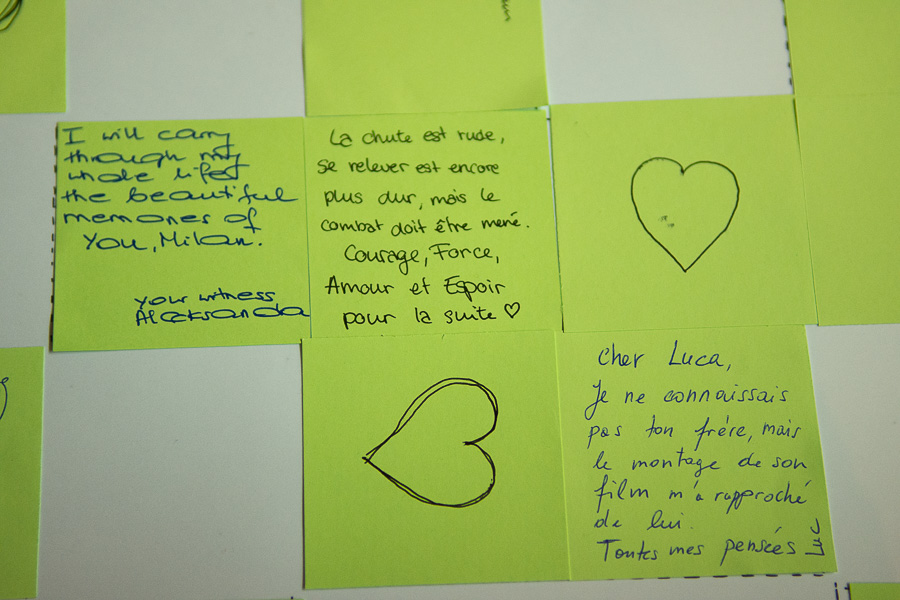 I will carry
through my
whole lifed
the beautiful
memories of
You, Milan.
your witness
Aleksanda
La chute est rude,
se relever est encore
plus dur, mais le
combat doit être mené.
Courage, Force,
Amour et Espoir
pour la suite ♡
Cher Luca,
Je ne connaissais
pas ton frére, mais
le montage de son
film m'a rapproché
de lui.
Toutes mes pensées